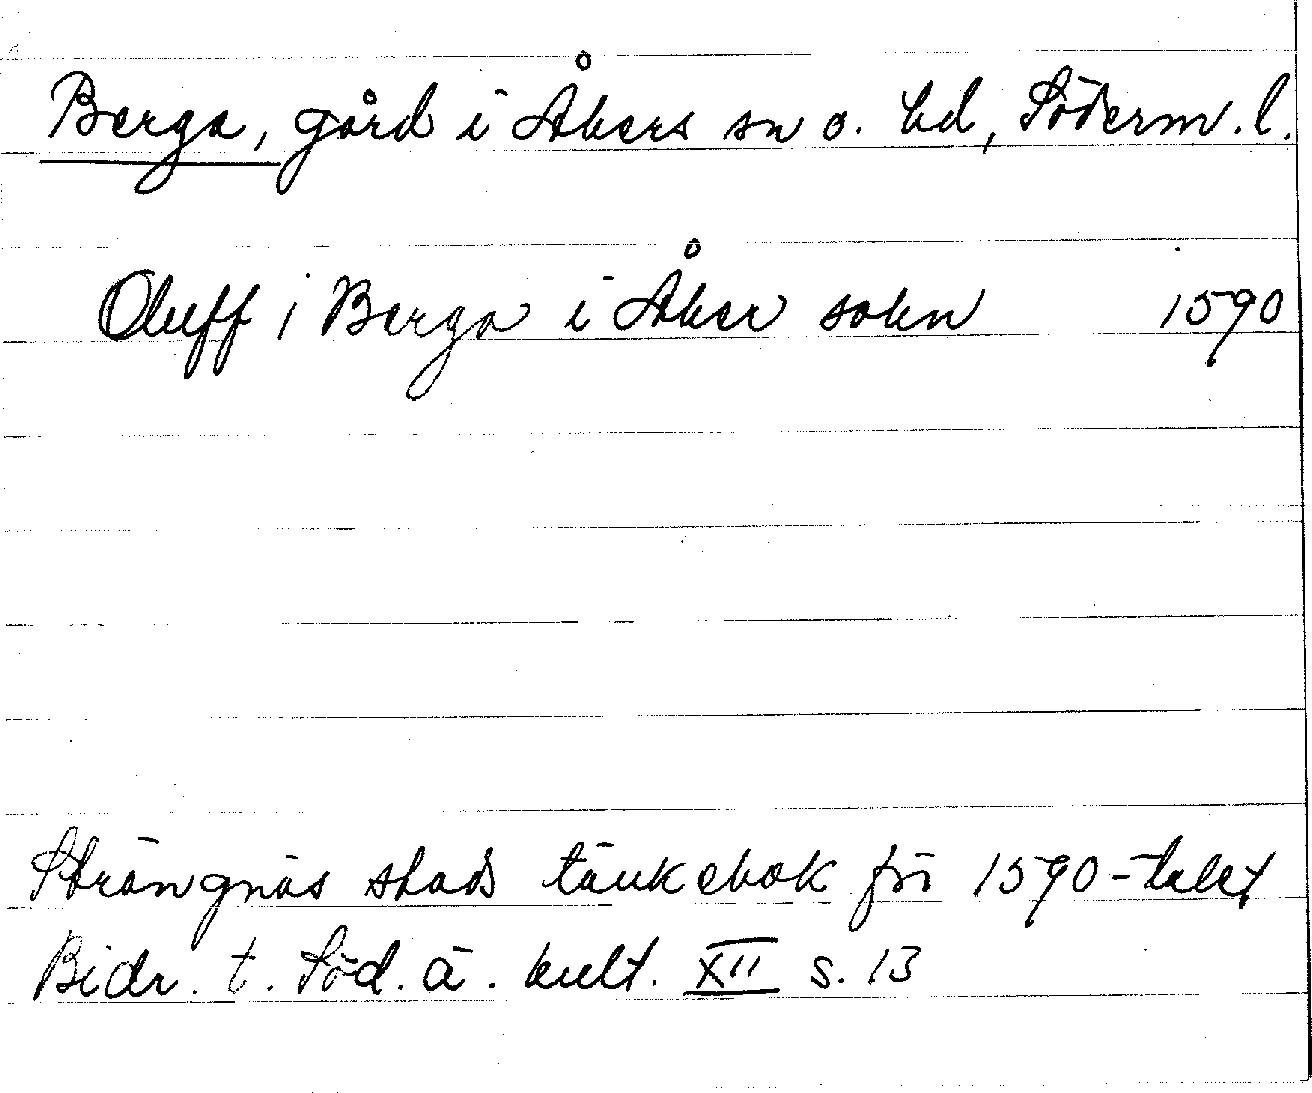 Berga, gård i Åkers sn o. hd, Söderm. l.
Oluff i Berga i Åker sokn 1590
Strängnäs stads tänkebok för 1590-talet
Bidr. t. Söd. ä. kult. XII s. 13